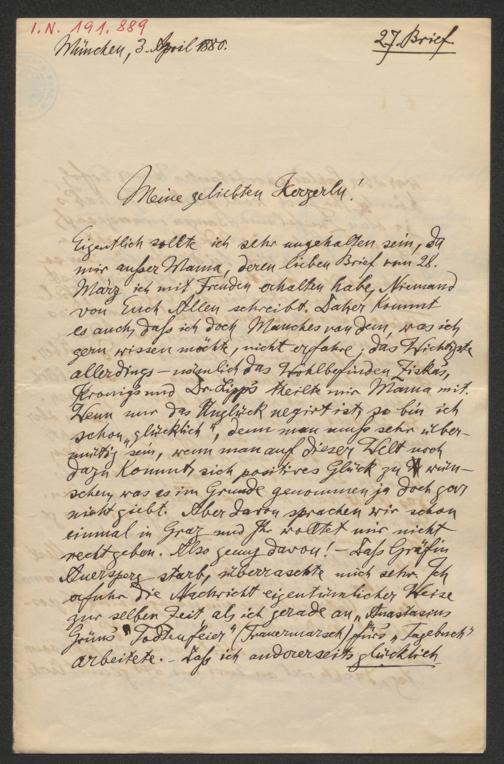 I.N. 191.889
München, 3. April 1880.
27. Brief
Meine geliebten Herzerln!
Eigentlich sollte ich sehr ungehalten sein, da
mir außer Mama, deren lieben Brief vom 28.
März ich mit Freuden erhalten habe, Niemand
von Euch Allen schreibt. Daher kommt
es auch, daß ich doch Manches von dem, was ich
gern wissen möchte, nicht erfahre; das Wichtigste
allerdings – nämlich das Wohlbefinden Fiskas,
und Dr. theilte mir Mama mit.
Wenn nur das Unglück negirt ist, so bin ich
schon „glücklich", denn man muß sehr über-
mütig sein, wenn man auf dieser Welt noch
dazu kommt, sich positives Glück zu wün-
schen, was es im Grunde genommen ja doch gar
nicht giebt. Aber davon sprachen wir schon
einmal in Graz und Ihr wolltet mir nicht
recht geben. Also genug davon! – Daß Gräfin
Auersperg starb, überraschte mich sehr. Ich
erfuhr die Nachricht eigentümlicher Weise
zur selben Zeit als ich gerade an „Anastasius
Grüns Todtenfeier" (Trauermarsch) fürs „Tagebuch"
arbeitete. – Daß ich andererseits glücklich